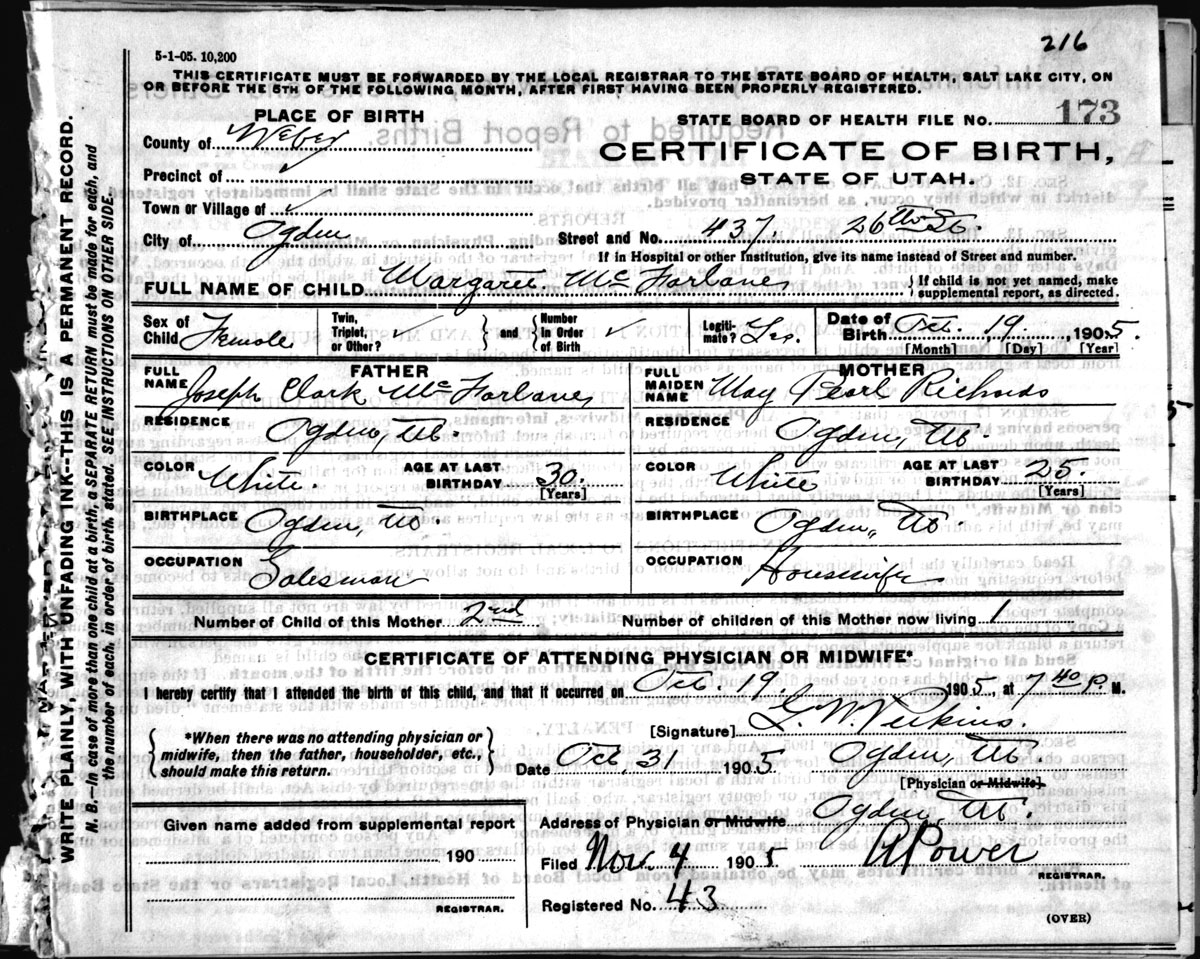 216
5-1-05. 10,200
THIS CERTIFICATE MUST BE FORWARDED BY THE LOCAL REGISTRAR TO THE STATE BOARD OF HEALTH, SALT LAKE CITY, ON
OR BEFORE THE 5TH OF THE FOLLOWING MONTH, AFTER FIRST HAVING BEEN PROPERLY REGISTERED.
WRITE PLAINLY, WITH UNFADING INK--THIS IS A PERMANENT RECORD.
N. B.--In case of more than one child at a birth, a SEPARATE RETURN must be made for each, and
the number of each, in order of birth, stated. SEE INSTRUCTIONS ON OTHER SIDE.
PLACE OF BIRTH
STATE BOARD OF HEALTH FILE No. 173
County of Weber
CERTIFICATE OF BIRTH,
STATE OF UTAH.
Precinct of ✓
Town or Village of ✓
City of Ogden
Street and No. 437 26th St.
If in Hospital or other Institution, give its name instead of Street and number.
FULL NAME OF CHILD Margaret McFarlane
{ If child is not yet named, make
supplemental report, as directed.
Sex of Child Female
Twin, Triplet, or Other? ✓ } and { Number In Order of Birth ✓
Legiti- mate? Yes.
Date of Birth Oct. 19, 1905.
[Month] [Day] [Year]
FATHER
FULL NAME Joseph Clark McFarlane
MOTHER
FULL MAIDEN NAME May Pearl Richards
RESIDENCE Ogden, Ut.
RESIDENCE Ogden, Ut.
COLOR White. AGE AT LAST BIRTHDAY 30. [Years]
COLOR White AGE AT LAST BIRTHDAY 25. [Years]
BIRTHPLACE Ogden, Ut
BIRTHPLACE Ogden, Ut.
OCCUPATION Salesman
OCCUPATION Housewife
Number of Child of this Mother 2nd
Number of children of this Mother now living 1
CERTIFICATE OF ATTENDING PHYSICIAN OR MIDWIFE*
I hereby certify that I attended the birth of this child, and that it occurred on Oct. 19. 1905, at 7 40 P. M.
*When there was no attending physician or
midwife, then the father, householder, etc.,
should make this return.
[Signature] Perkins.
Date Oct. 31 1905. Ogden, Ut
[Physician or Midwife].
Address of Physician or Midwife Ogden, Ut.
Given name added from supplemental report
190
REGISTRAR.
Filed Nov. 4 1905 Power
REGISTRAR.
Registered No. 43
(OVER)